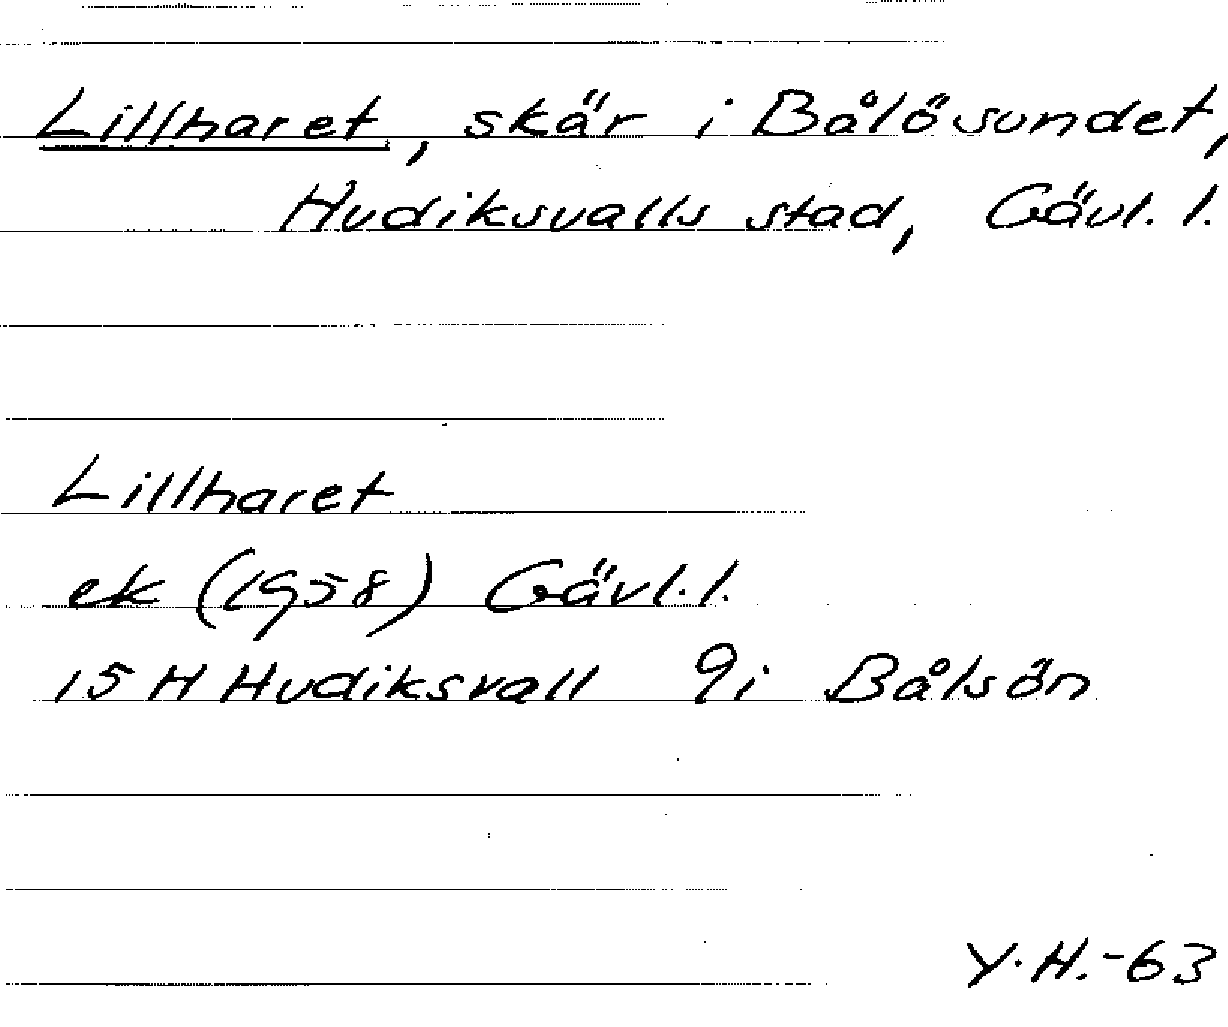 Lillharet, skär i Bålösundet,
Hudiksvalls stad, Gävl. l.
Lillharet
ek (1958) Gävl. l.
15 H Hudiksvall 9i Bålsön
Y. H. -63